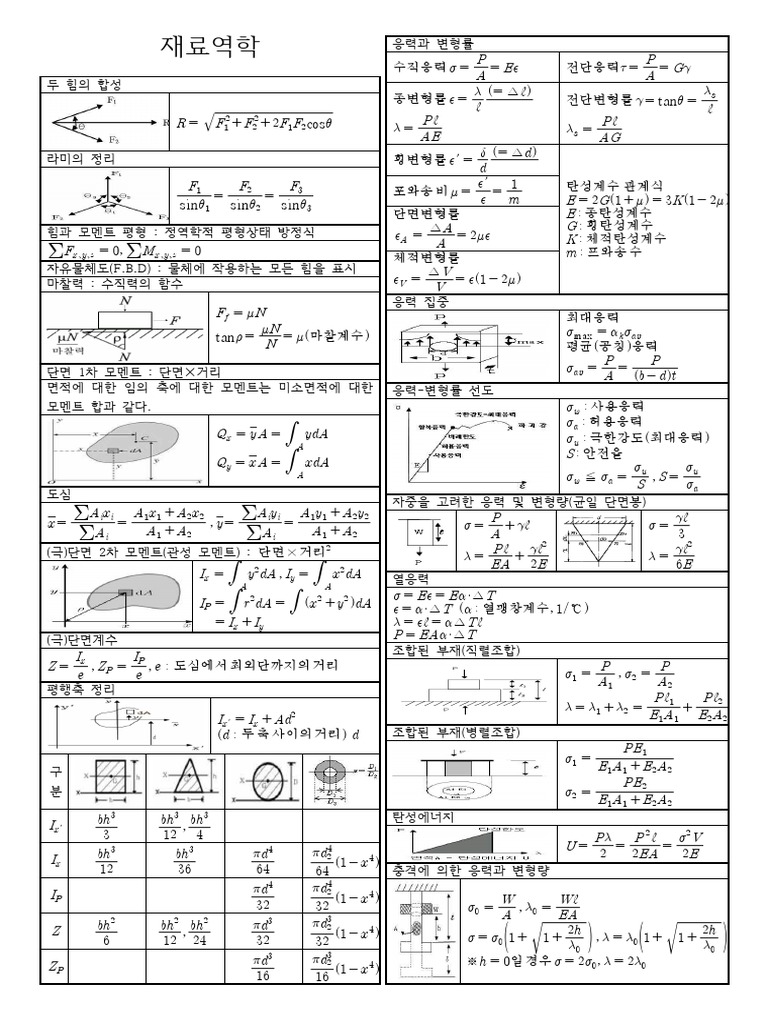 재료역학
두 힘의 합성
F₁
θ
R
F₂
R = √(F₁² + F₂² + 2F₁F₂cosθ)
라미의 정리
F₁
θ₃ θ₂
F₂ θ₁ F₃
F₁/sinθ₁ = F₂/sinθ₂ = F₃/sinθ₃
힘과 모멘트 평형 : 정역학적 평형상태 방정식
∑F_{x,y,z} = 0, ∑M_{x,y,z} = 0
자유물체도(F.B.D) : 물체에 작용하는 모든 힘을 표시
마찰력 : 수직력의 함수
N
F
μN
ρ
마찰력
N
F_f = μN
tanρ = μN/N = μ(마찰계수)
단면 1차 모멘트 : 단면×거리
면적에 대한 임의 축에 대한 모멘트는 미소면적에 대한
모멘트 합과 같다.
Q_x = y̅A = ∫_A ydA
Q_y = x̅A = ∫_A xdA
도심
x̅ = ∑A_i x_i/∑A_i = (A₁x₁ + A₂x₂)/(A₁ + A₂) , y̅ = ∑A_i y_i/∑A_i = (A₁y₁ + A₂y₂)/(A₁ + A₂)
(극)단면 2차 모멘트(관성 모멘트) : 단면×거리²
I_x = ∫_A y²dA, I_y = ∫_A x²dA
I_P = ∫r²dA = ∫(x² + y²)dA
= I_x + I_y
(극)단면계수
Z = I_x/e , Z_P = I_P/e , e : 도심에서 최외단까지의 거리
평행축 정리
I_x′ = I_x + Ad²
(d : 두축사이의 거리) d
구분
I_x′ bh³/3 bh³/12 , bh³/4
I_x bh³/12 bh³/36 πd⁴/64 πd₂⁴/64 (1−x⁴)
I_P πd⁴/32 πd₂⁴/32 (1−x⁴)
Z bh²/6 bh²/12 , bh²/24 πd³/32 πd₂³/32 (1−x⁴)
Z_P πd³/16 πd₂³/16 (1−x⁴)
응력과 변형률
수직응력 σ = P/A = Eϵ
전단응력 τ = P/A = Gγ
종변형률 ϵ = λ(=Δl)/l
λ = Pl/AE
전단변형률 γ = tanθ = λ_s/l
λ_s = Pl/AG
횡변형률 ϵ′ = δ(=Δd)/d
포와송비 μ = ϵ′/ϵ = 1/m
단면변형률
ϵ_A = ΔA/A = 2μϵ
체적변형률
ϵ_V = ΔV/V = ϵ(1−2μ)
탄성계수 관계식
E = 2G(1+μ) = 3K(1−2μ)
E : 종탄성계수
G : 횡탄성계수
K : 체적탄성계수
m : 포와송수
응력 집중
P
max
b
t
P
최대응력
σ_max = α_k σ_av
평균(공칭)응력
σ_av = P/A = P/((b−d)t)
응력-변형률 선도
극한강도=최대응력
항복응력
파 괴 강
비례한도
허용응력
사용응력
E
σ_w : 사용응력
σ_a : 허용응력
σ_u : 극한강도(최대응력)
S : 안전율
σ_w ≦ σ_a = σ_u/S , S = σ_u/σ_a
자중을 고려한 응력 및 변형량(균일 단면봉)
W
P
σ = P/A + γl
λ = Pl/EA + γl²/2E
σ = γl/3
λ = γl²/6E
열응력
σ = Eϵ = Eα·ΔT
ϵ = α·ΔT (α : 열팽창계수, 1/℃)
λ = ϵl = αΔTl
P = EAα·ΔT
조합된 부재(직렬조합)
σ₁ = P/A₁ , σ₂ = P/A₂
λ = λ₁ + λ₂ = Pl₁/E₁A₁ + Pl₂/E₂A₂
조합된 부재(병렬조합)
σ₁ = PE₁/(E₁A₁ + E₂A₂)
σ₂ = PE₂/(E₁A₁ + E₂A₂)
탄성에너지
탄성한도
면적A = 탄성에너지 U
U = Pλ/2 = P²l/2EA = σ²V/2E
충격에 의한 응력과 변형량
σ₀ = W/A , λ₀ = Wl/EA
σ = σ₀(1 + √(1 + 2h/λ₀)) , λ = λ₀(1 + √(1 + 2h/λ₀))
※h = 0일 경우 σ = 2σ₀, λ = 2λ₀